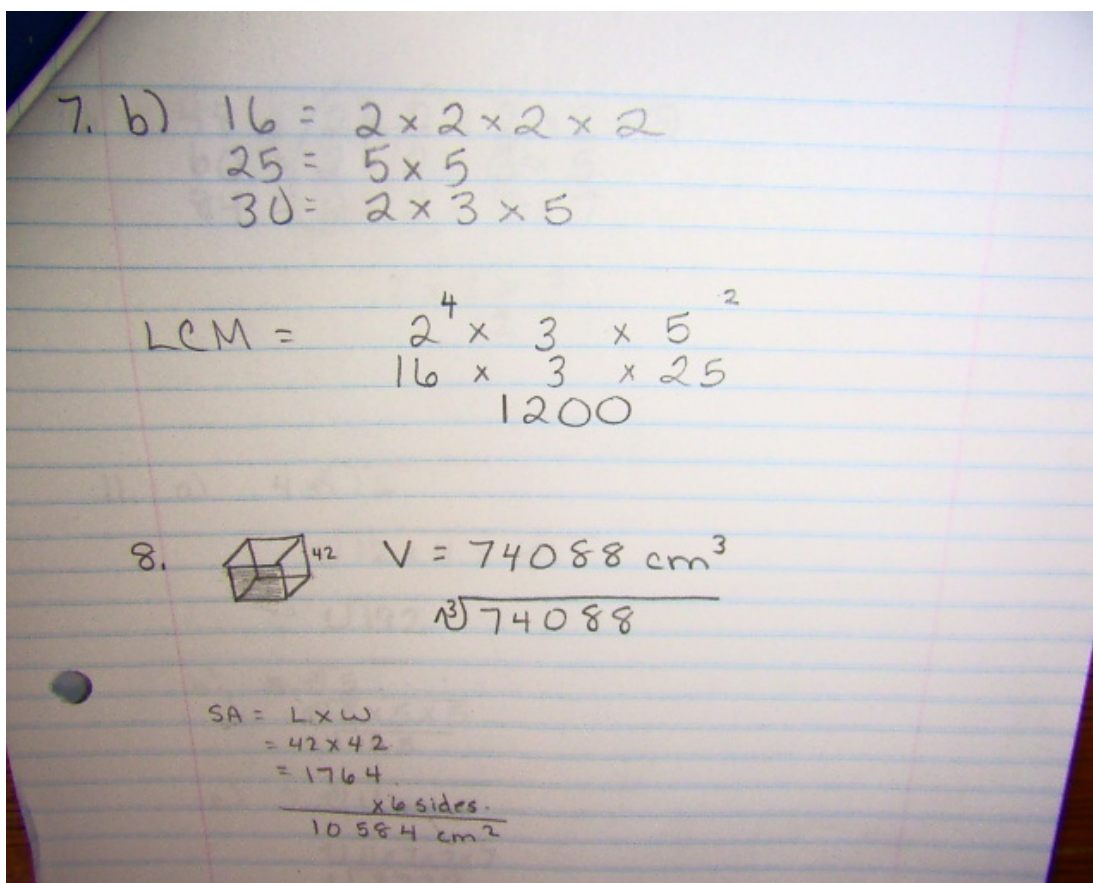 7. b) 16 = 2 × 2 × 2 × 2
25 = 5 × 5
30 = 2 × 3 × 5
LCM = 2⁴ × 3 × 5²
16 × 3 × 25
1200
8. 42 V = 74088 cm³
∛74088
SA = L × W
= 42 × 42
= 1764
× 6 sides.
10 584 cm²